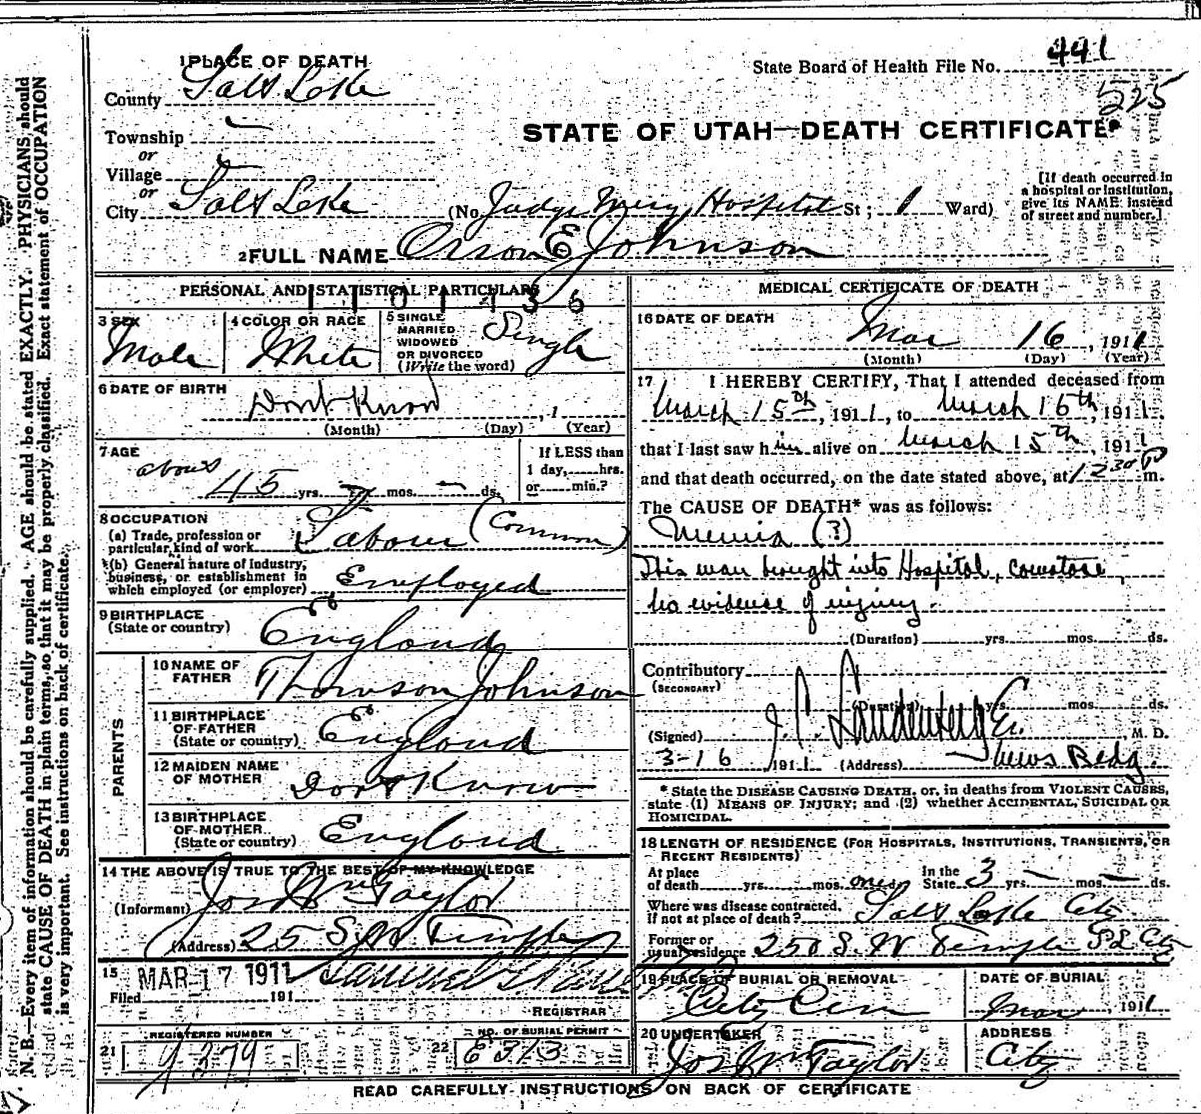 N. B.—Every item of information should be carefully supplied. AGE should be stated EXACTLY. PHYSICIANS should
state CAUSE OF DEATH in plain terms, so that it may be properly classified. Exact statement of OCCUPATION
is very important. See instructions on back of certificate.
1 PLACE OF DEATH
State Board of Health File No. 441
525
County Salt Lake
STATE OF UTAH—DEATH CERTIFICATE
Township
or
Village
or
City Salt Lake (No. Judge Mercy Hospital St; 1 Ward)
[If death occurred in
a hospital or institution,
give its NAME instead
of street and number.]
2 FULL NAME Orson E Johnson
PERSONAL AND STATISTICAL PARTICULARS
1101436
3 SEX
Male
4 COLOR OR RACE
White
5 SINGLE
MARRIED
WIDOWED
OR DIVORCED
(Write the word)
Single
6 DATE OF BIRTH
Dont Know , 1
(Month) (Day) (Year)
7 AGE
about
45 yrs. — mos. — ds.
If LESS than
1 day, hrs.
or min.?
8 OCCUPATION
(a) Trade, profession or
particular kind of work
Labour (Common)
(b) General nature of Industry,
business, or establishment in
which employed (or employer)
Employed
9 BIRTHPLACE
(State or country)
England
PARENTS
10 NAME OF
FATHER
Johnson
11 BIRTHPLACE
OF FATHER
(State or country)
England
12 MAIDEN NAME
OF MOTHER
Dont Know
13 BIRTHPLACE
OF MOTHER
(State or country)
England
14 THE ABOVE IS TRUE TO THE BEST OF MY KNOWLEDGE
(Informant) Jos Wm Taylor
(Address) 25 S W Temple
15
Filed MAR 17 1911 191
REGISTRAR
REGISTERED NUMBER
21
9279
NO. OF BURIAL PERMIT
22
E313
MEDICAL CERTIFICATE OF DEATH
16 DATE OF DEATH
Mar 16 , 1911
(Month) (Day) (Year)
17 I HEREBY CERTIFY, That I attended deceased from
March 15th, 1911, to March 16th, 1911.
that I last saw him alive on March 15th, 1911
and that death occurred, on the date stated above, at 12 30 P m.
The CAUSE OF DEATH* was as follows:
Uremia (?)
This man brought into Hospital, comatose,
no evidence of injury.
(Duration) yrs. mos. ds.
Contributory
(SECONDARY)
(Duration) yrs. mos. ds.
(Signed) M. D.
3-16 1911 (Address) News Bldg.
* State the DISEASE CAUSING DEATH, or, in deaths from VIOLENT CAUSES,
state (1) MEANS OF INJURY; and (2) whether ACCIDENTAL, SUICIDAL OR
HOMICIDAL.
18 LENGTH OF RESIDENCE (FOR HOSPITALS, INSTITUTIONS, TRANSIENTS, OR
RECENT RESIDENTS)
At place
of death yrs. mos. one ds.
In the
State 3 yrs. — mos. — ds.
Where was disease contracted,
if not at place of death? Salt Lake City
Former or
usual residence 250 S. W Temple S L City
19 PLACE OF BURIAL OR REMOVAL
City Cem
DATE OF BURIAL
Mar , 1911
20 UNDERTAKER
Jos Wm Taylor
ADDRESS
City
READ CAREFULLY INSTRUCTIONS ON BACK OF CERTIFICATE